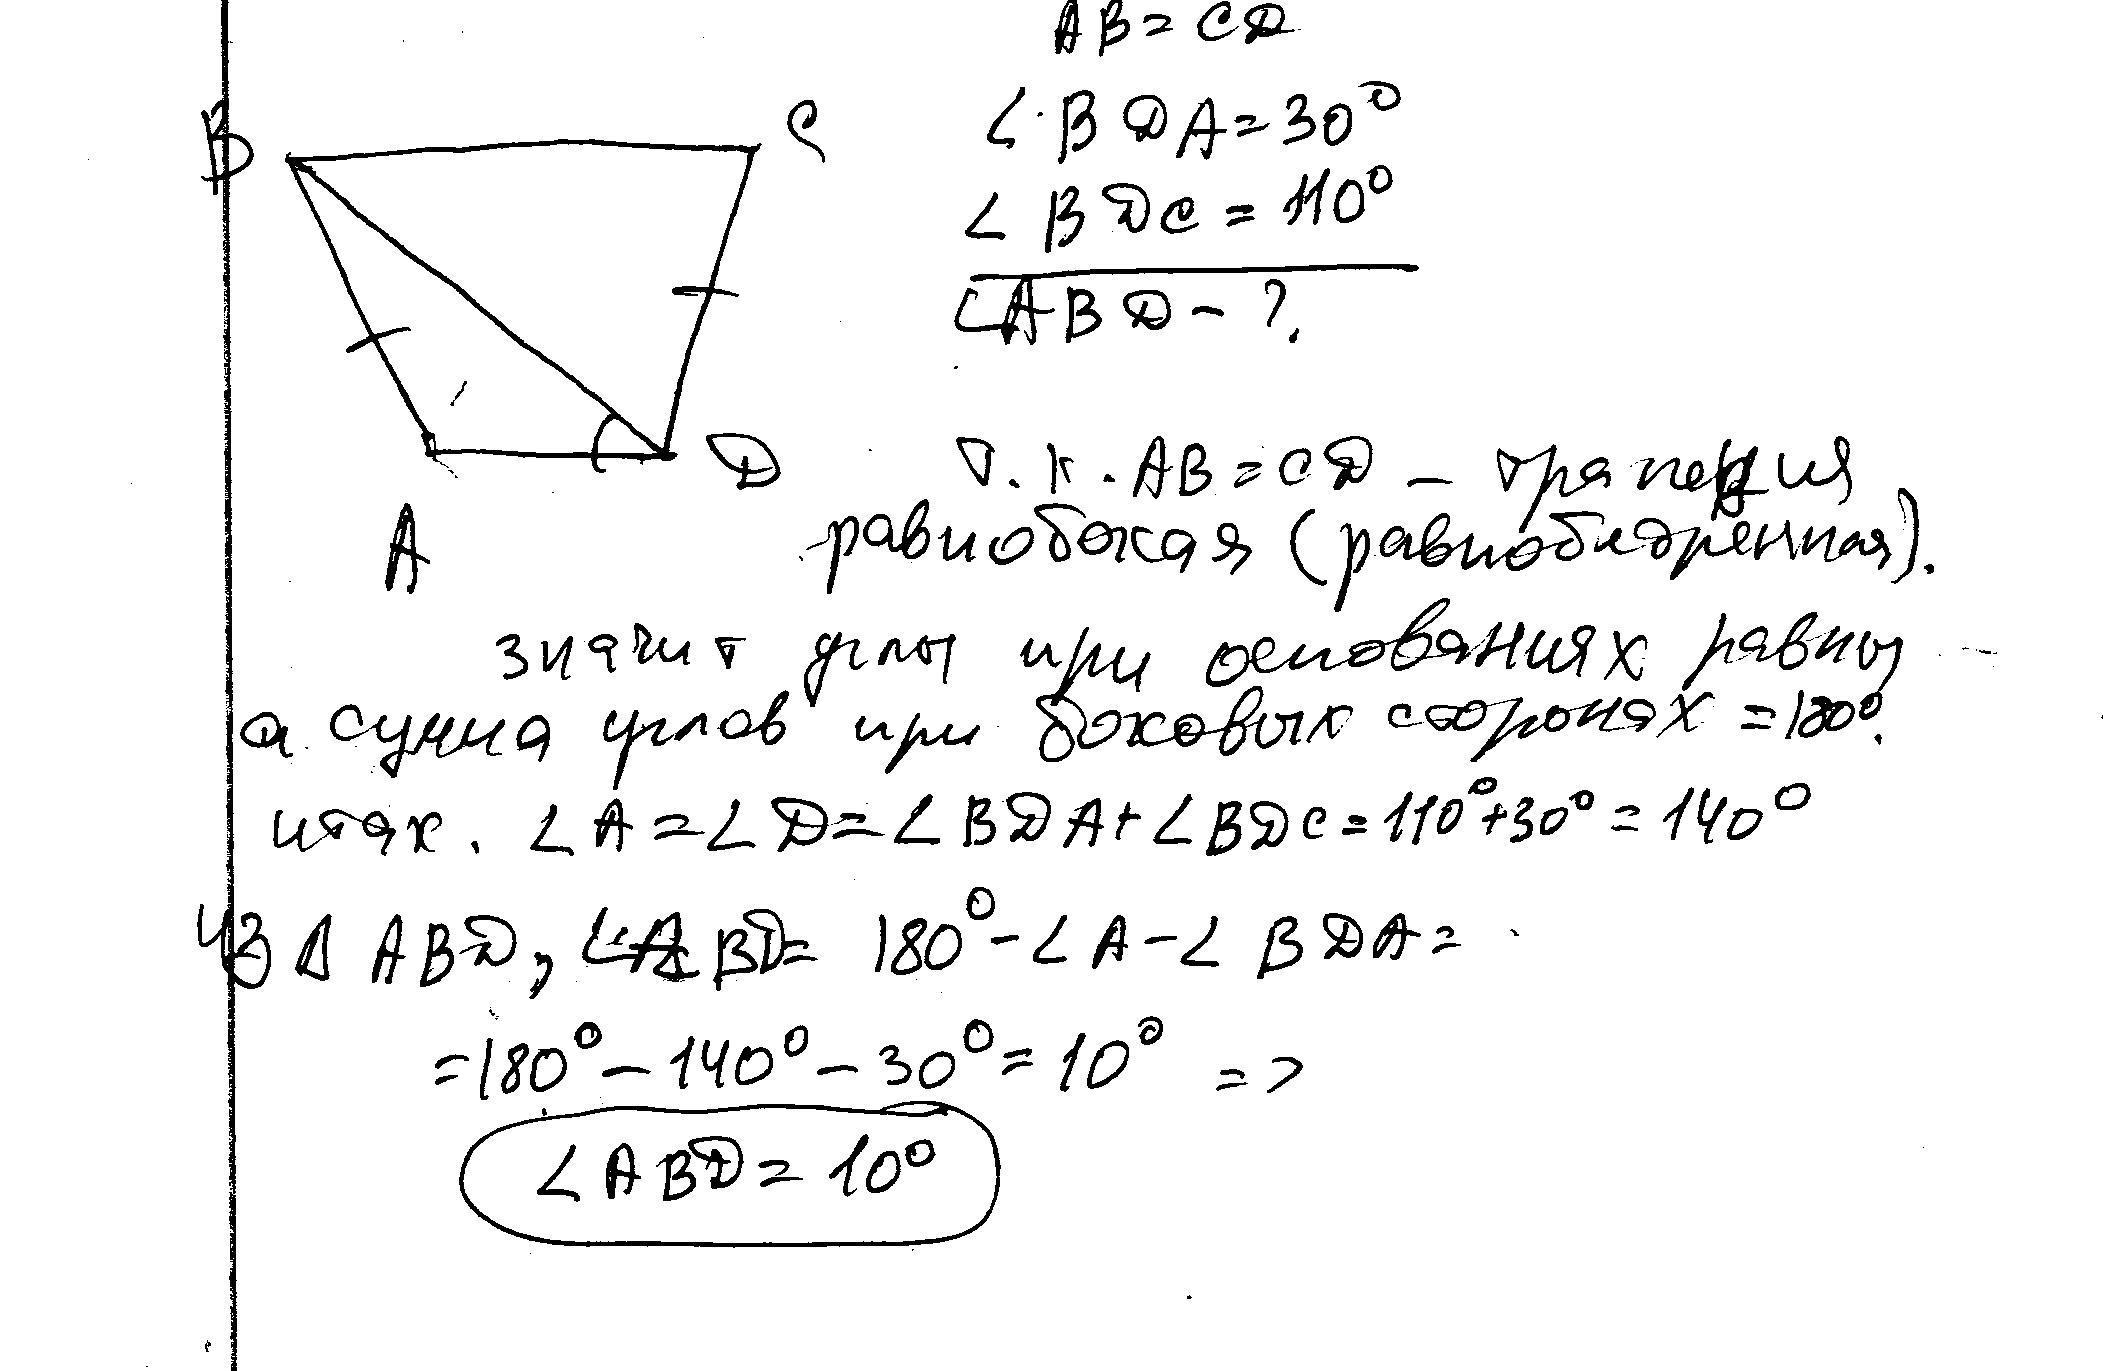 AB = CD
∠BDA = 30°
∠BDC = 110°
∠ABD - ?
B
C
D
A
т.к. AB = CD - трапеция
равнобокая (равнобедренная).
значит углы при основаниях равны
а сумма углов при боковых сторонах = 180°.
итак. ∠A = ∠D = ∠BDA + ∠BDC = 110° + 30° = 140°
Из Δ ABD, ∠ABD = 180° - ∠A - ∠BDA =
= 180° - 140° - 30° = 10° =>
∠ABD = 10°